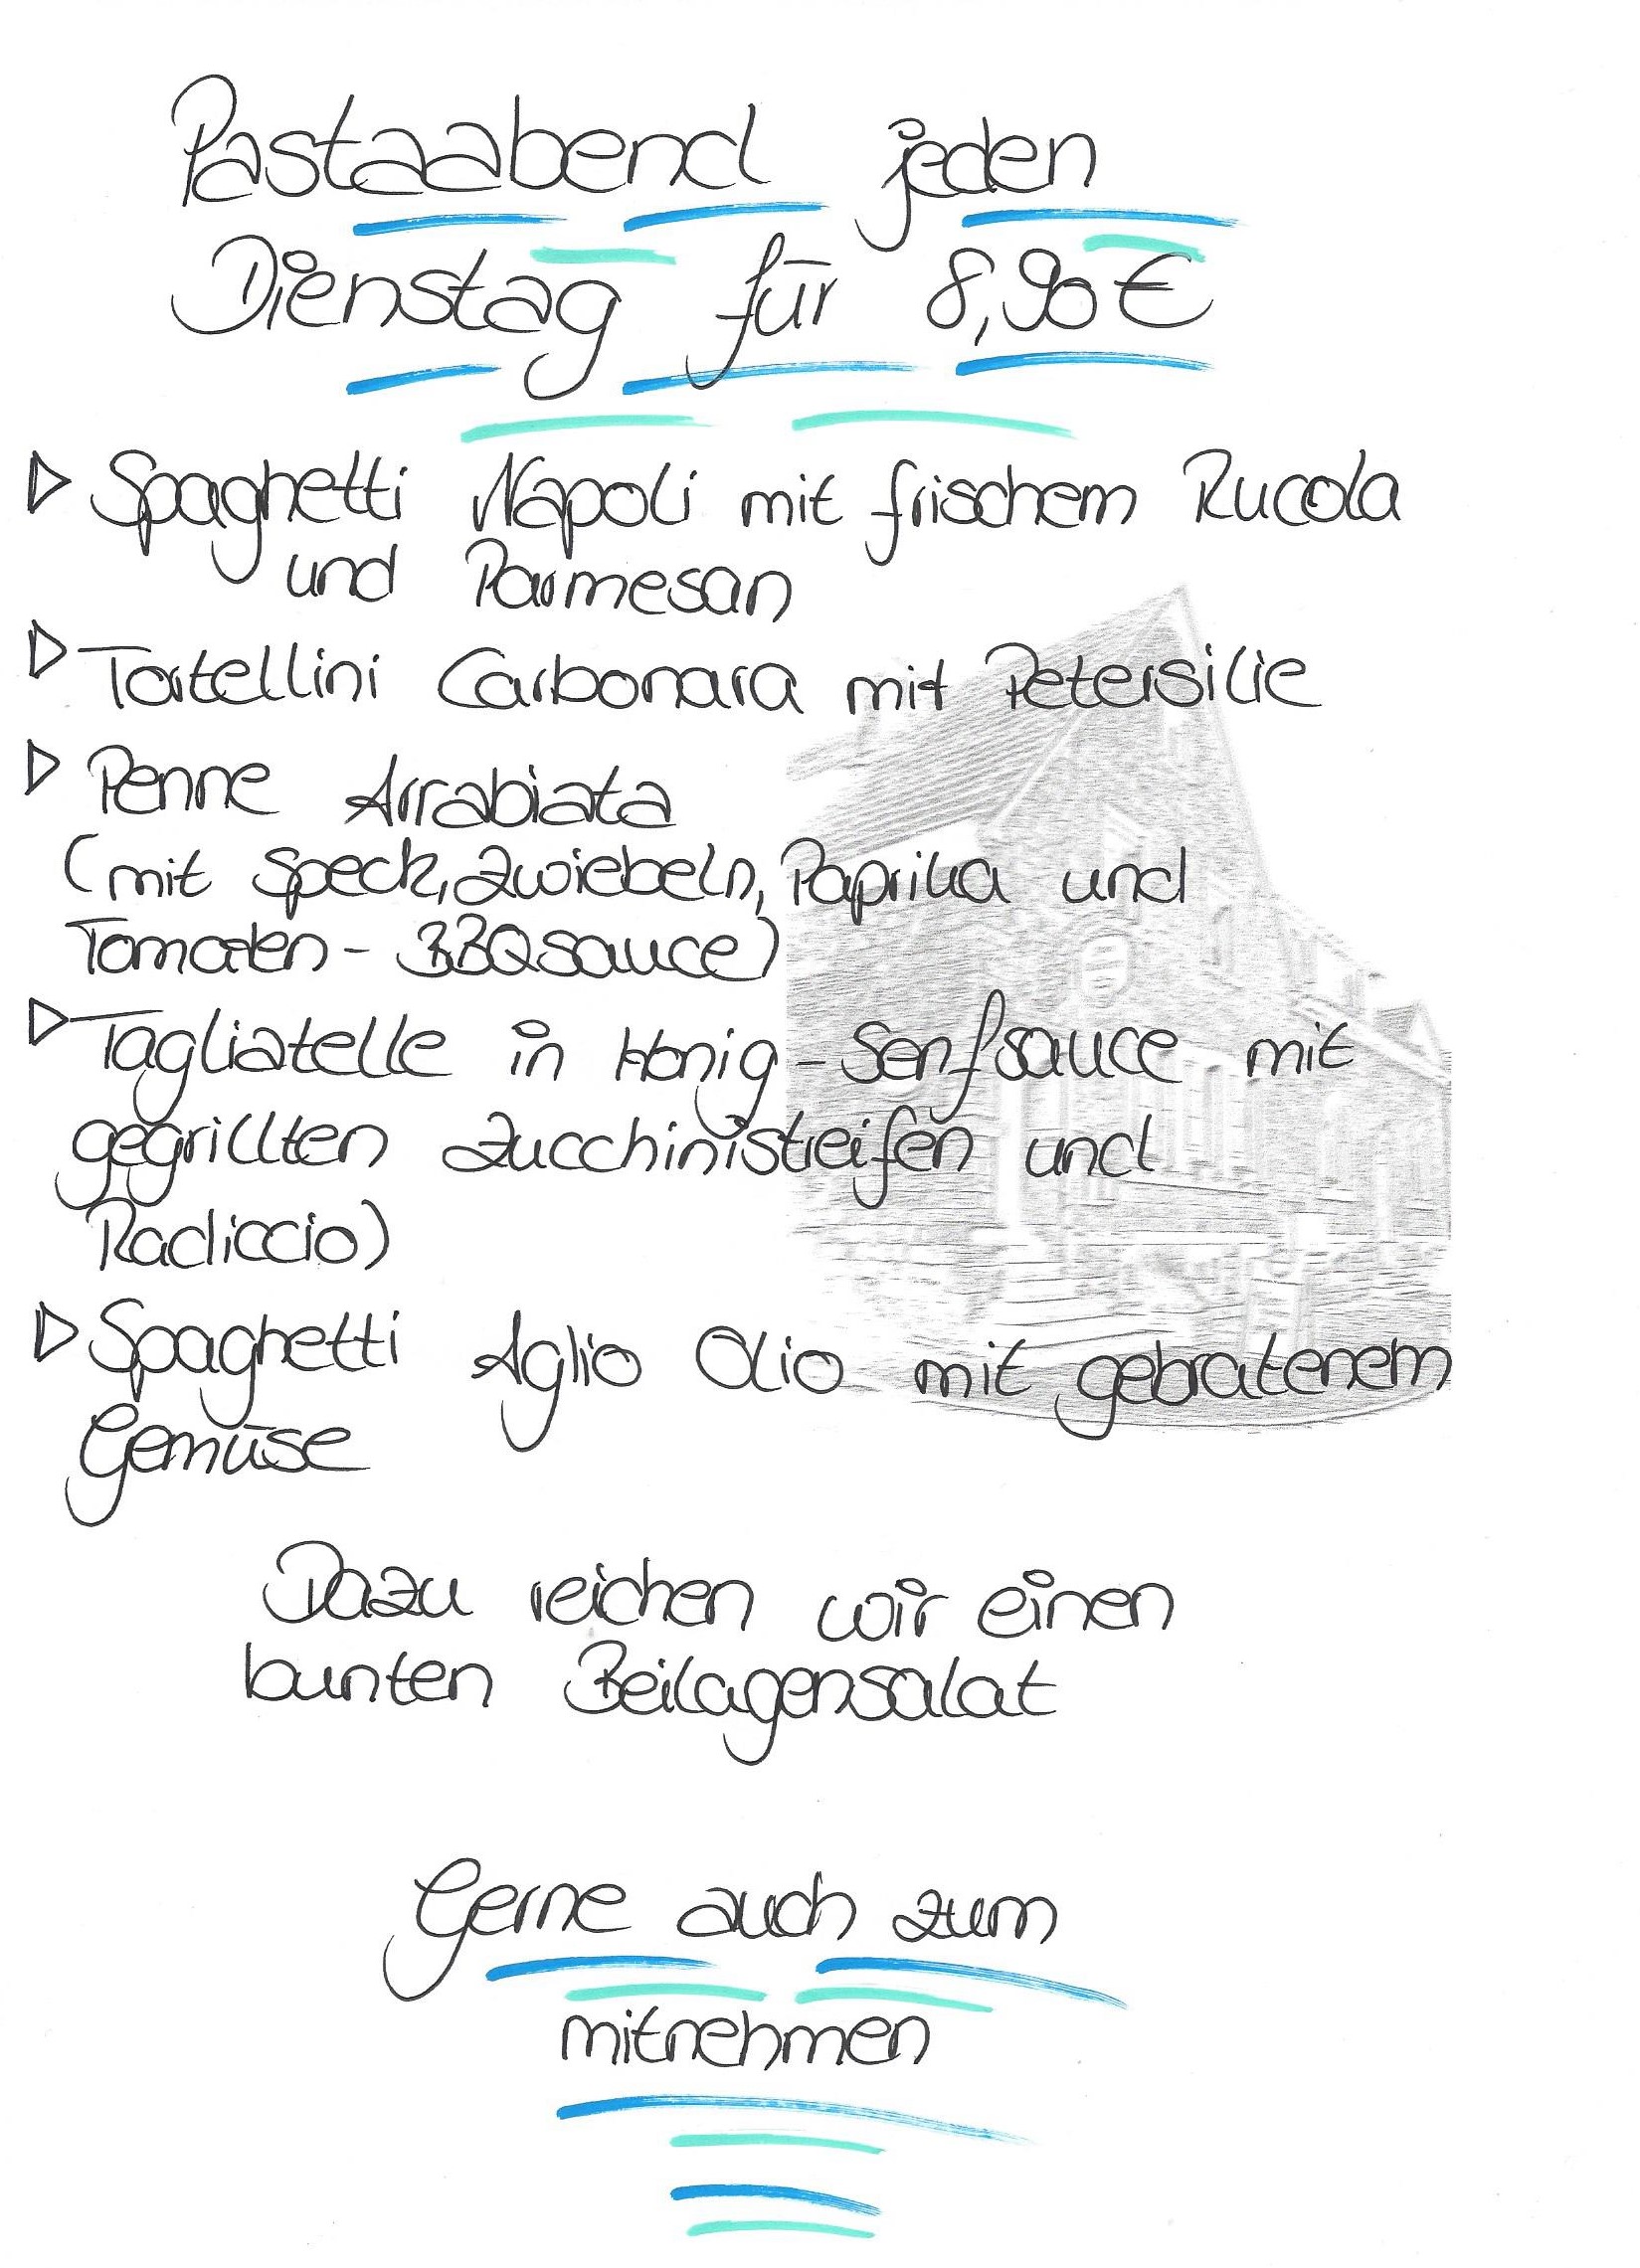 Pastaabend jeden
Dienstag für 8,90€
▷ Spaghetti Napoli mit frischem Rucola
und Parmesan
▷ Tortellini Carbonara mit Petersilie
▷ Penne Arrabiata
(mit Speck, Zwiebeln, Paprika und
Tomaten- BBQsauce)
▷ Tagliatelle in Honig-Senfsauce mit
gegrillten Zucchinistreifen und
Radiccio)
▷ Spaghetti Aglio Olio mit gebratenem
Gemüse
Dazu reichen wir einen
bunten Beilagensalat
Gerne auch zum
mitnehmen